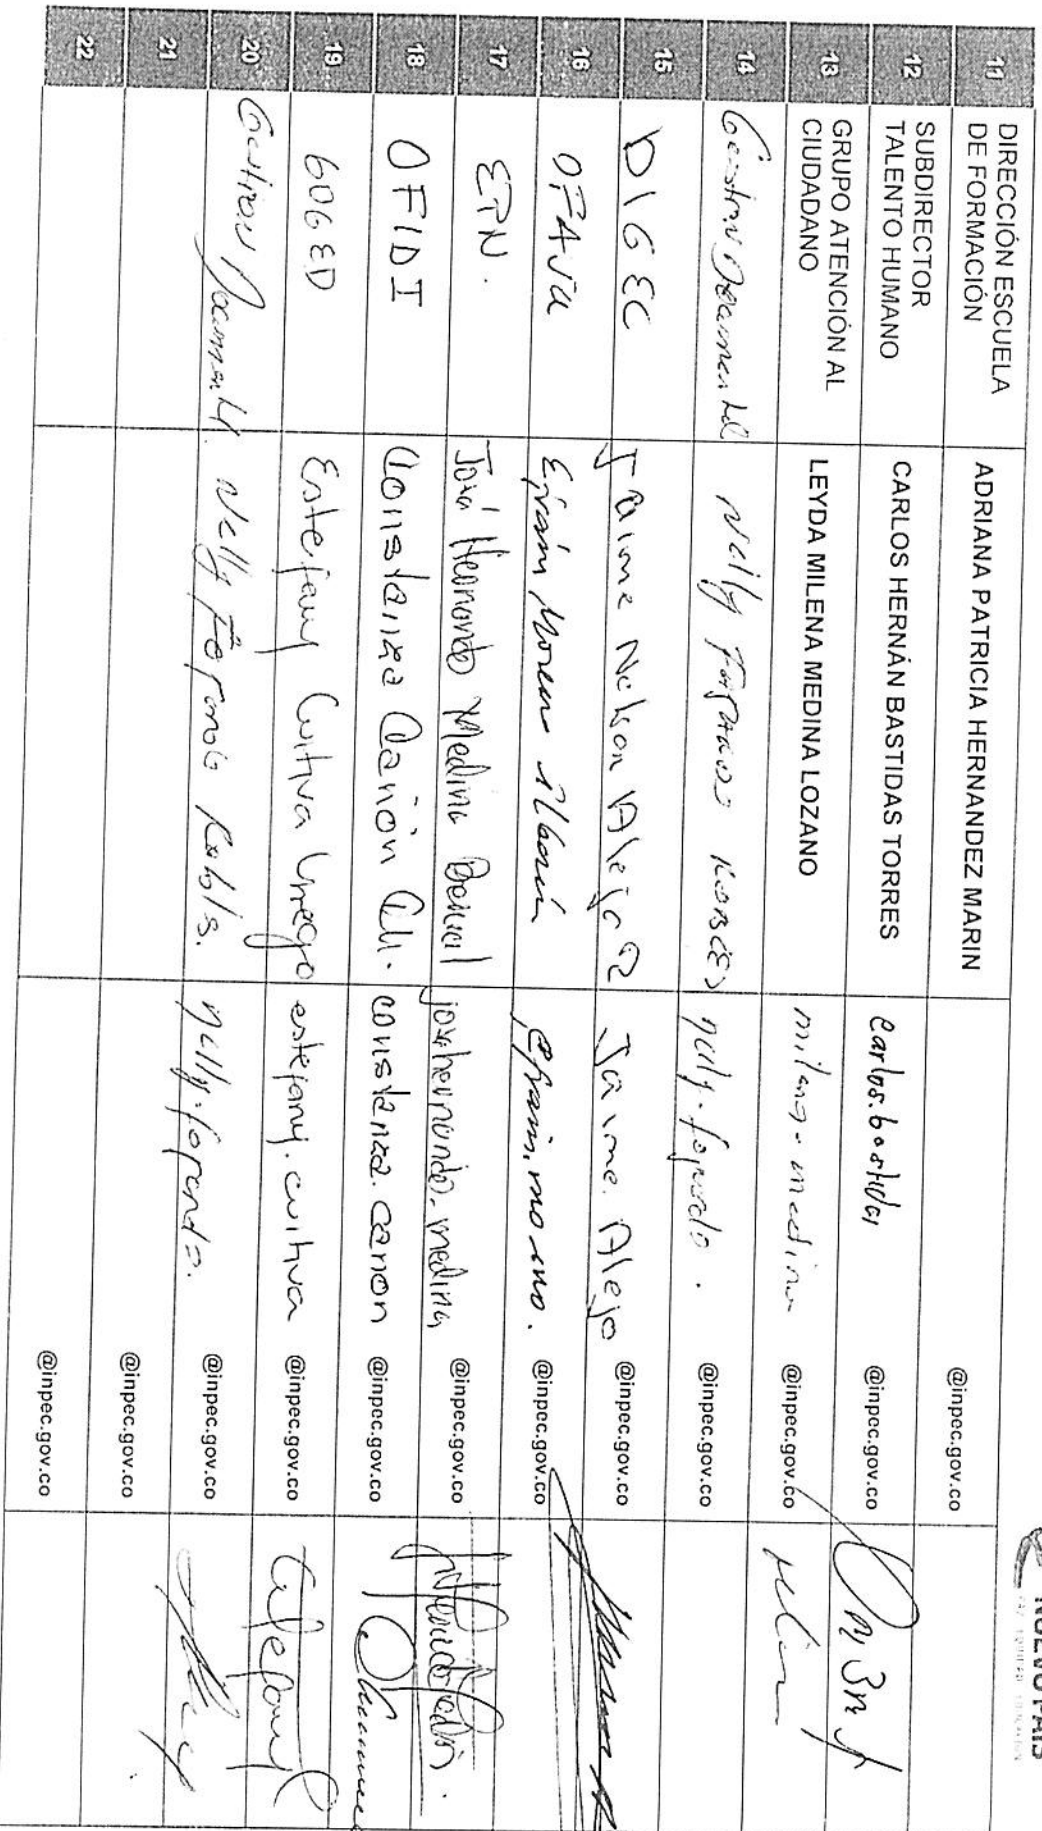 NUEVO PAÍS
11 DIRECCIÓN ESCUELA DE FORMACIÓN ADRIANA PATRICIA HERNANDEZ MARIN @inpec.gov.co
12 SUBDIRECTOR TALENTO HUMANO CARLOS HERNÁN BASTIDAS TORRES Carlos.bastidas @inpec.gov.co
13 GRUPO ATENCIÓN AL CIUDADANO LEYDA MILENA MEDINA LOZANO milena.medina @inpec.gov.co
14 Gestion Documental Nelly Fajardo Robles nelly.fajardo. @inpec.gov.co
15 DIGEC Jaime Nelson Alejo R Jaime.Alejo @inpec.gov.co
16 OFAJU Efraín Moreno Albarán efrain.moreno. @inpec.gov.co
17 EPN. José Hernando Medina Bernal josehernando.medina @inpec.gov.co
18 OFIDI Constanza Cañón Ch. constanza.canon @inpec.gov.co
19 GOGED Estefany Cuitiva Urrego estefany.cuitiva @inpec.gov.co
20 Gestion Documental. Nelly Fajardo Robles. nelly.fajardo. @inpec.gov.co
21 @inpec.gov.co
22 @inpec.gov.co